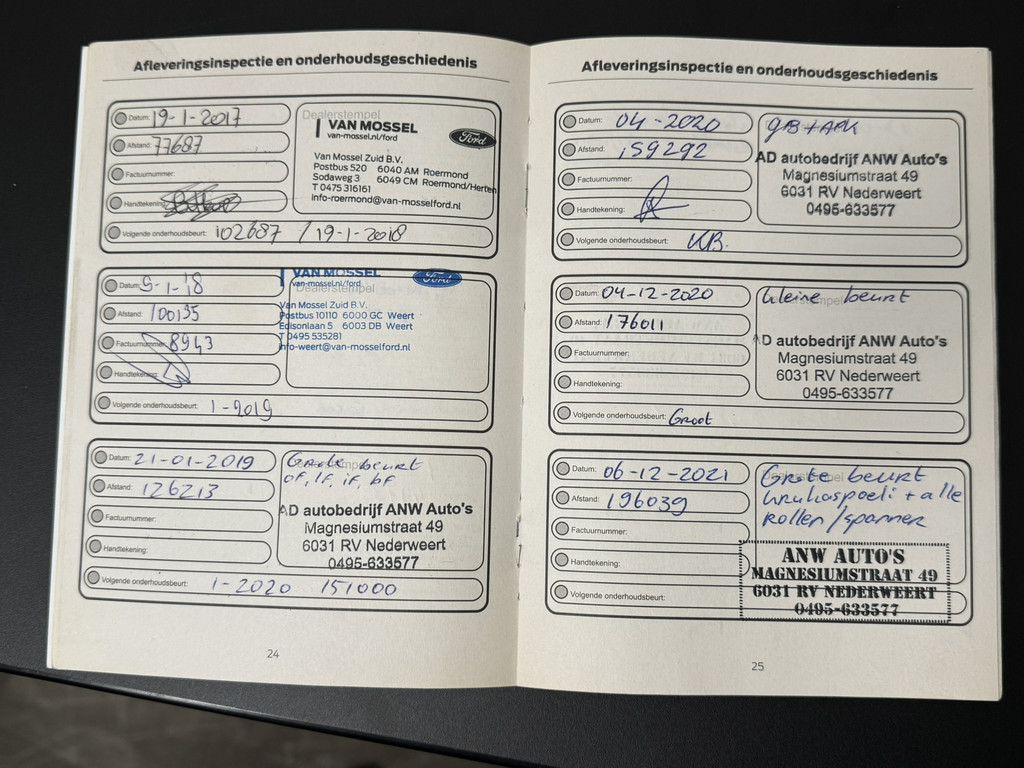 Afleveringsinspectie en onderhoudsgeschiedenis
Datum: 19-1-2017
Afstand: 77687
Factuurnummer:
Handtekening:
Volgende onderhoudsbeurt: 102687 / 19-1-2018
Dealerstempel
VAN MOSSEL
van-mossel.nl/ford
Ford
Van Mossel Zuid B.V.
Postbus 520 6040 AM Roermond
Sodaweg 3 6049 CM Roermond/Herten
T 0475 316161
info-roermond@van-mosselford.nl
Datum: 9-1-'18
Afstand: 100135
Factuurnummer: 8943
Handtekening:
Volgende onderhoudsbeurt: 1-2019
VAN MOSSEL
van-mossel.nl/ford
Ford
Dealerstempel
Van Mossel Zuid B.V.
Postbus 10110 6000 GC Weert
Edisonlaan 5 6003 DB Weert
T 0495 535281
info-weert@van-mosselford.nl
Datum: 21-01-2019
Afstand: 126213
Factuurnummer:
Handtekening:
Volgende onderhoudsbeurt: 1-2020 151000
Grote beurt
of, lf, if, bf
AD autobedrijf ANW Auto's
Magnesiumstraat 49
6031 RV Nederweert
0495-633577
24
Afleveringsinspectie en onderhoudsgeschiedenis
Datum: 04-2020
Afstand: 159292
Factuurnummer:
Handtekening:
Volgende onderhoudsbeurt: KB.
GB + APK
AD autobedrijf ANW Auto's
Magnesiumstraat 49
6031 RV Nederweert
0495-633577
Datum: 04-12-2020
Afstand: 176011
Factuurnummer:
Handtekening:
Volgende onderhoudsbeurt: Groot
kleine beurt
AD autobedrijf ANW Auto's
Magnesiumstraat 49
6031 RV Nederweert
0495-633577
Datum: 06-12-2021
Afstand: 196039
Factuurnummer:
Handtekening:
Volgende onderhoudsbeurt:
Grote beurt
+ alle
rollen/spanner
ANW AUTO'S
MAGNESIUMSTRAAT 49
6031 RV NEDERWEERT
0495-633577
25